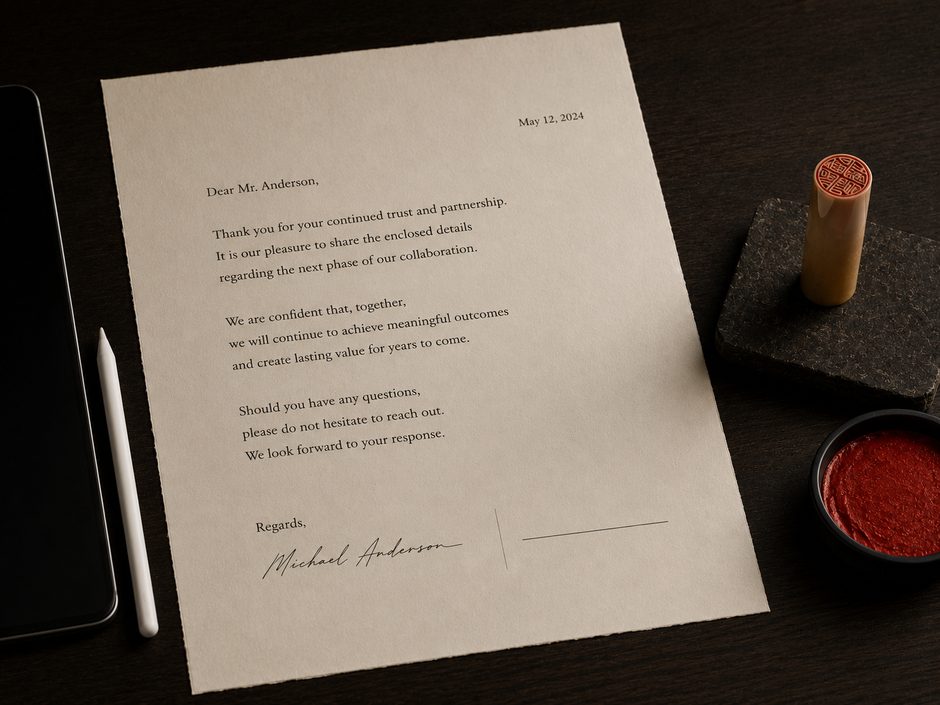 May 12, 2024
Dear Mr. Anderson,
Thank you for your continued trust and partnership.
It is our pleasure to share the enclosed details
regarding the next phase of our collaboration.
We are confident that, together,
we will continue to achieve meaningful outcomes
and create lasting value for years to come.
Should you have any questions,
please do not hesitate to reach out.
We look forward to your response.
Regards,
Michael Anderson